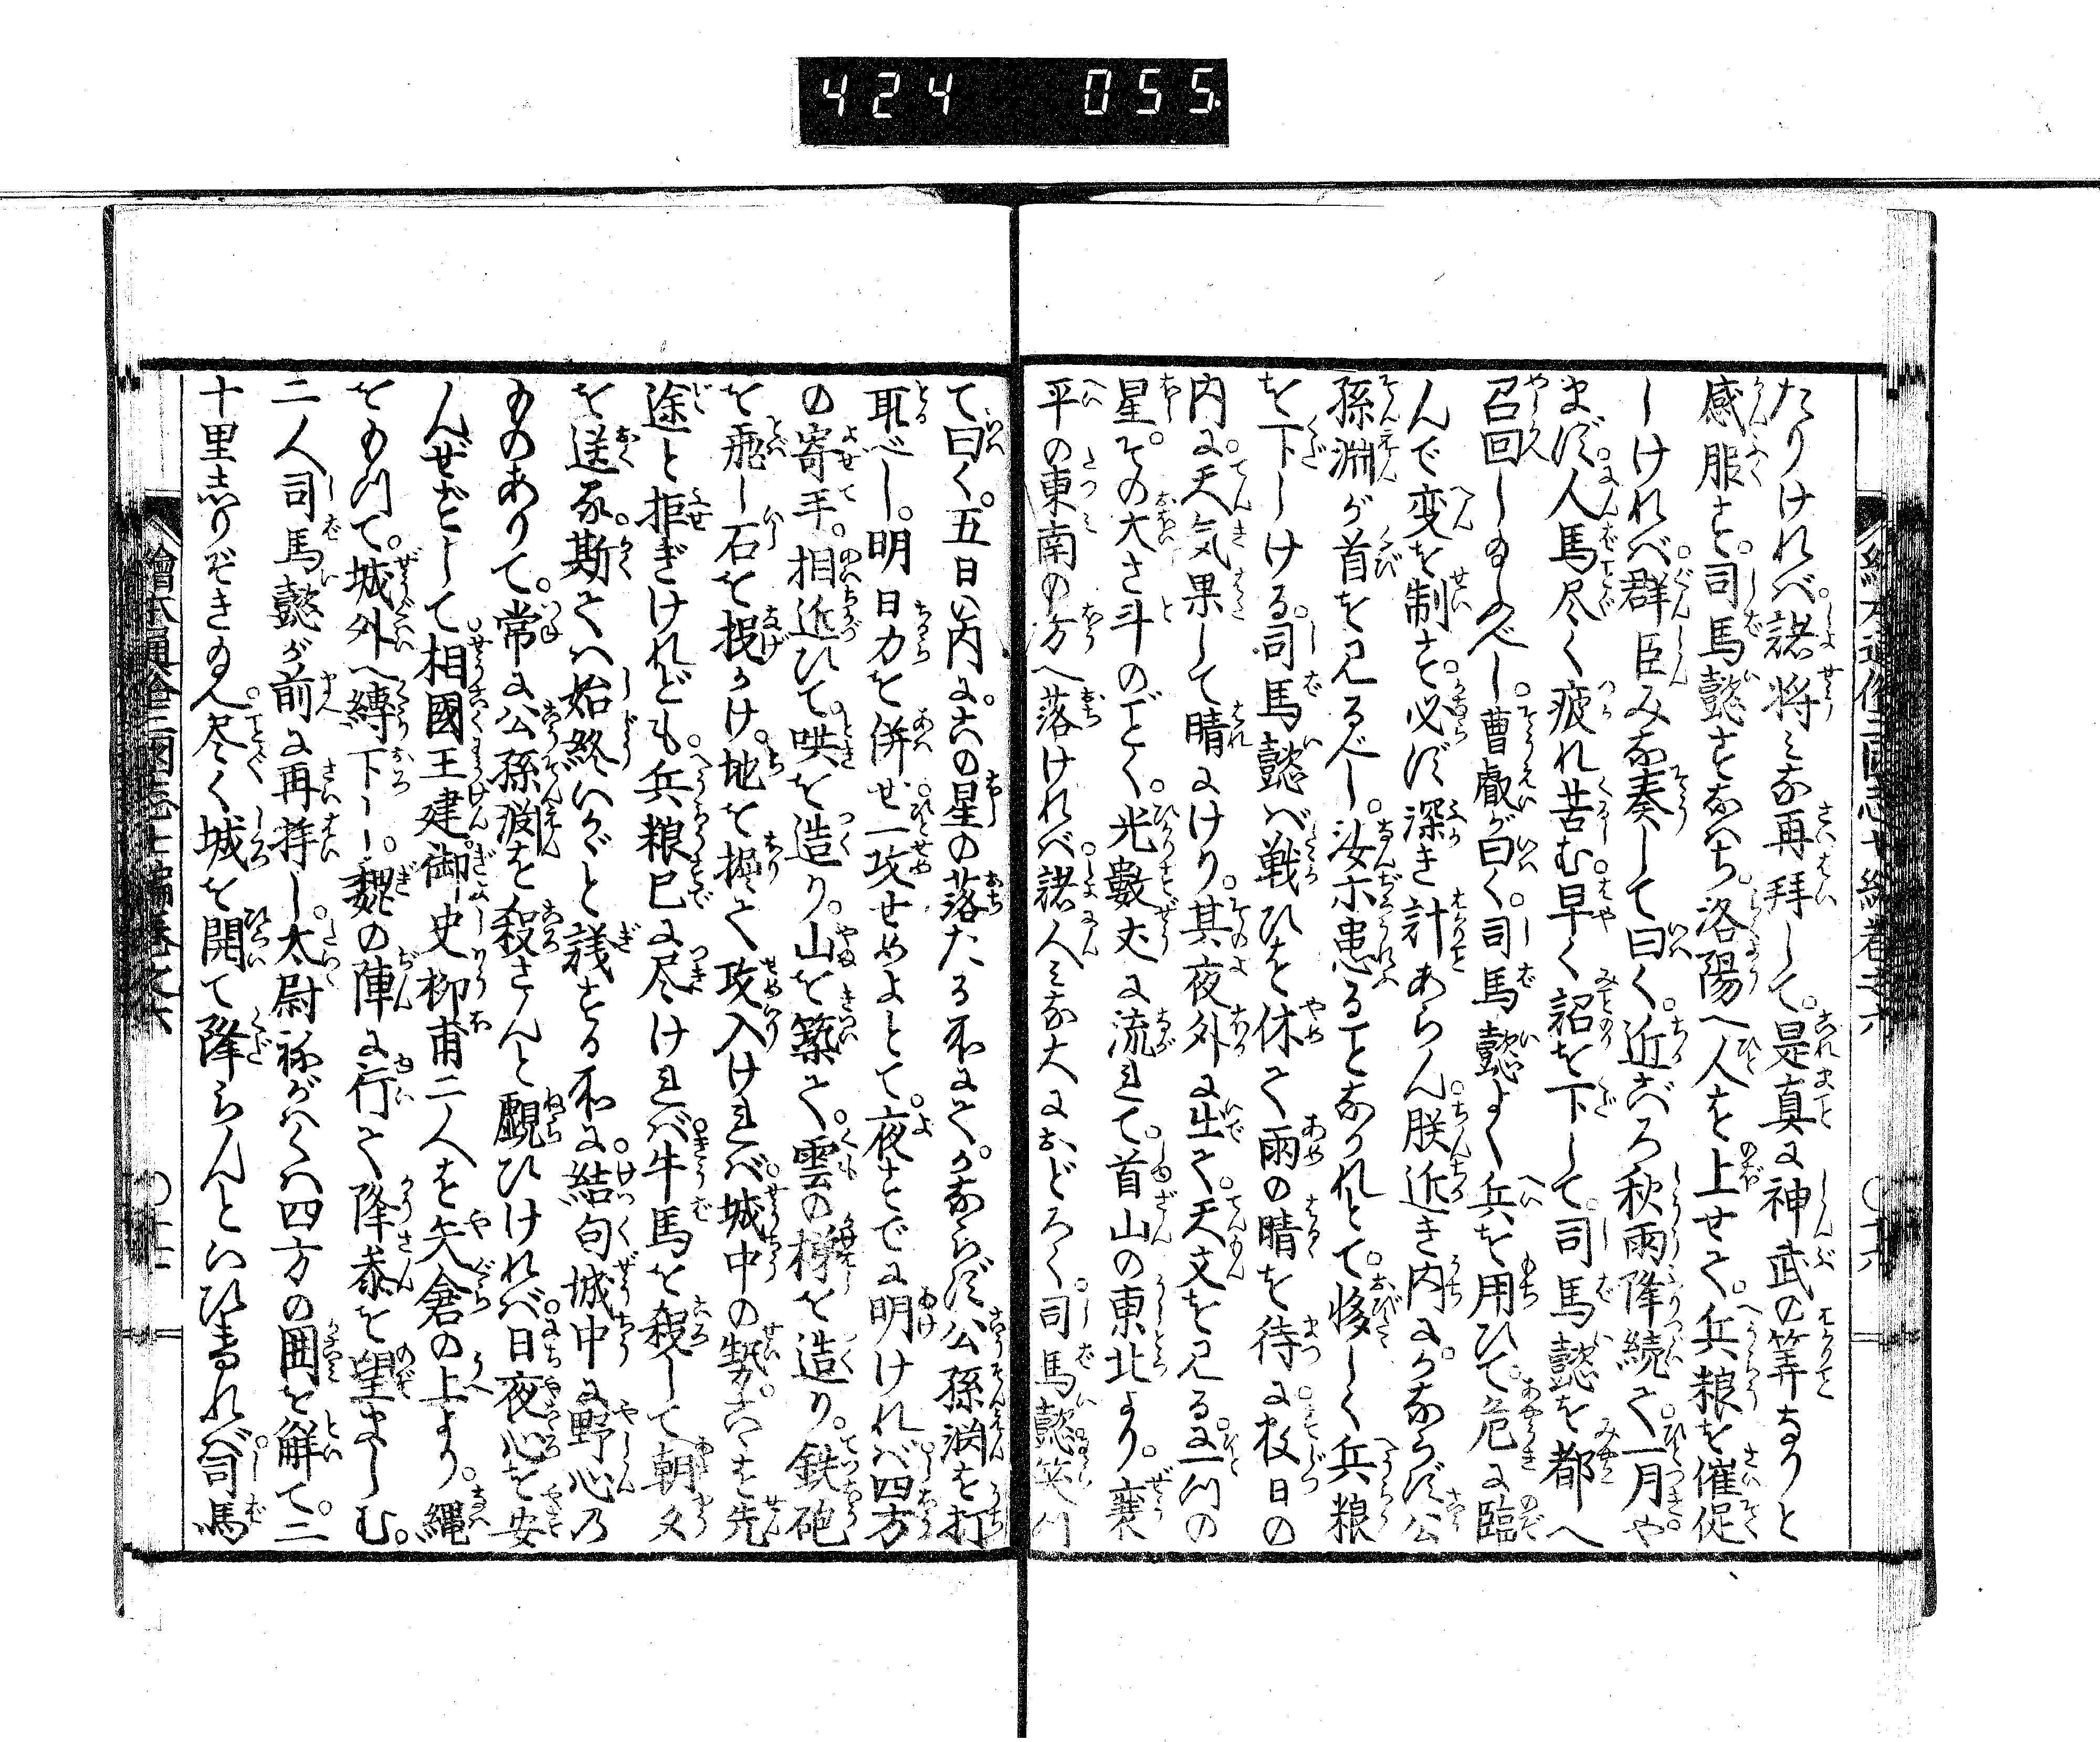 424 055
たりければ。諸将みな再拜して。是真に神武の筭なりと
感服す。司馬懿すなはち。洛陽へ人を上せて。兵粮を催促
しければ。群臣みな奏して曰く。近ごろ秋雨降続て。一月や
まず。人馬尽く疲れ苦む早く詔を下して。司馬懿を都へ
召回し給ふべし。曹叡が曰く。司馬懿よく兵を用ひて。危に臨
んで変を制す。必ず深き計あらん。朕近き内に。かならず公
孫淵が首を見るべし。汝等患ることなかれとて。夥しく兵粮
を下しける。司馬懿は戦ひを休て雨の晴を待に。数日の
内に。天気果して晴にけり。其夜外に出て。天文を見るに。一つの
星。その大さ斗のごとく。光數丈に流れて。首山の東北より。襄
平の東南の方へ落ければ。諸人みな大におどろく。司馬懿笑つ
て曰く。五日の内に。此の星の落たる所にて。かならず公孫淵を打
取べし。明日力を併せ。一攻せめよとて。夜すでに明ければ。四方
の寄手。相近ひて。哄を造り。山を築て。雲の梯を造り。鉄砲
を飛し石を投かけ。地を掘て攻入ければ。城中の勢。此を先
途と拒ぎけれども。兵粮已に尽ければ。牛馬を殺して朝夕
を送る。斯ては始終いかゞと議する所に。結句城中に野心の
ものありて。常に公孫淵を殺さんと覷ひければ。日夜心を安
んぜずして。相國王建。御史柳甫二人を矢倉の上より。縄
をもつて。城外へ縛下し。魏の陣に行て降参を望ましむ。
二人司馬懿が前に再拝し。太尉ねがはくは四方の囲を解て。二
十里しりぞき給へ。尽く城を開て降らんといひければ。司馬